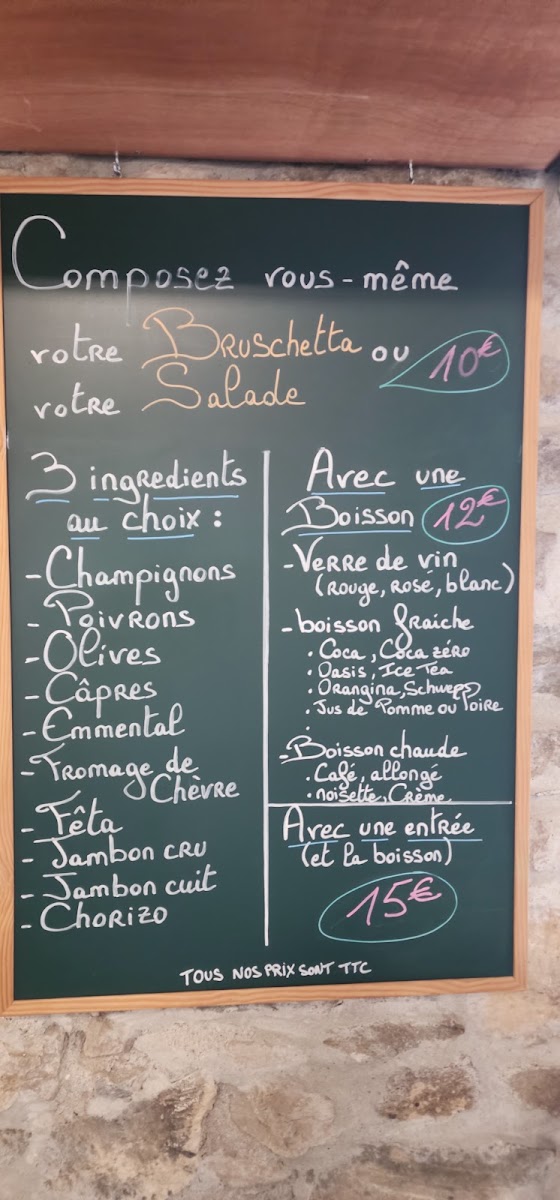 Composez vous-même
votre Bruschetta ou
votre Salade
10€
3 ingredients
au choix :
- Champignons
- Poivrons
- Olives
- Câpres
- Emmental
- Fromage de
Chèvre
- Fêta
- Jambon cru
- Jambon cuit
- Chorizo
Avec une
Boisson 12€
- Verre de vin
(rouge, rosé, blanc)
- boisson fraiche
• Coca, Coca zéro
• Oasis, Ice Tea
• Orangina, Schwepp
• Jus de Pomme ou Poire
- Boisson chaude
• Café, allongé
• noisette, Crème
Avec une entrée
(et la boisson)
15€
TOUS NOS PRIX SONT TTC